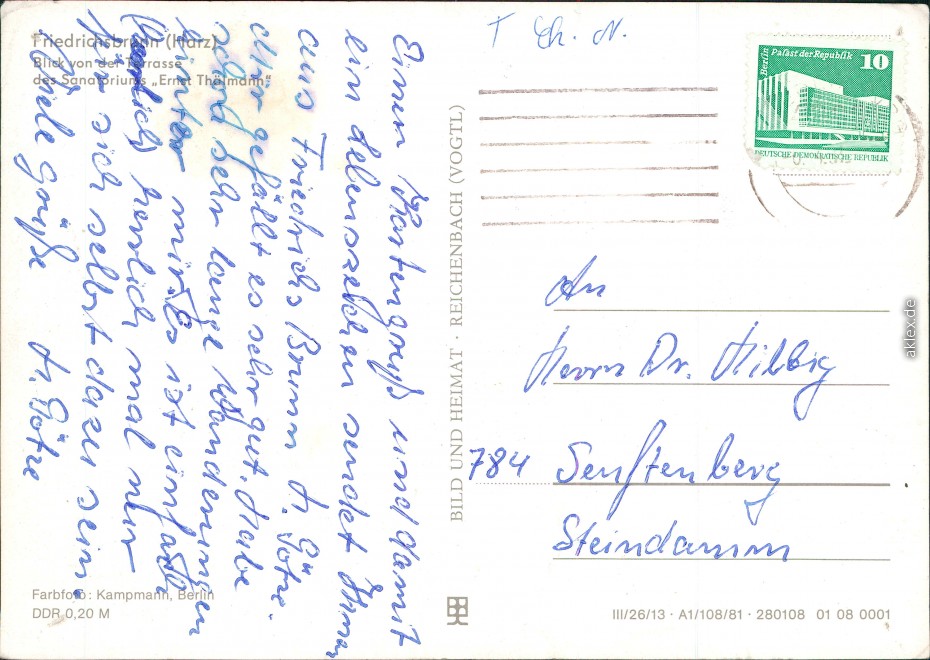 Friedrichsbrunn (Harz)
Blick von der Terrasse
des Sanatoriums „Ernst Thälmann"
Einen Kartengruß und damit
ein Lebenszeichen sendet Ihnen
aus Friedrichs Brunn A. Götze.
Mir gefällt es sehr gut. Habe
schon sehr lange Wanderungen
hinter mir. Es ist einfach
herrlich mal nur
für sich selbst da zu sein.
Viele Grüße A. Götze
BILD UND HEIMAT · REICHENBACH (VOGTL)
T Ch. N.
Berlin Palast der Republik 10
DEUTSCHE DEMOKRATISCHE REPUBLIK
An
Herrn Dr. Hilbig
784 Senftenberg
Steindamm
Farbfoto: Kampmann, Berlin
DDR 0,20 M
III/26/13 · A1/108/81 · 280108 01 08 0001
aklex.de